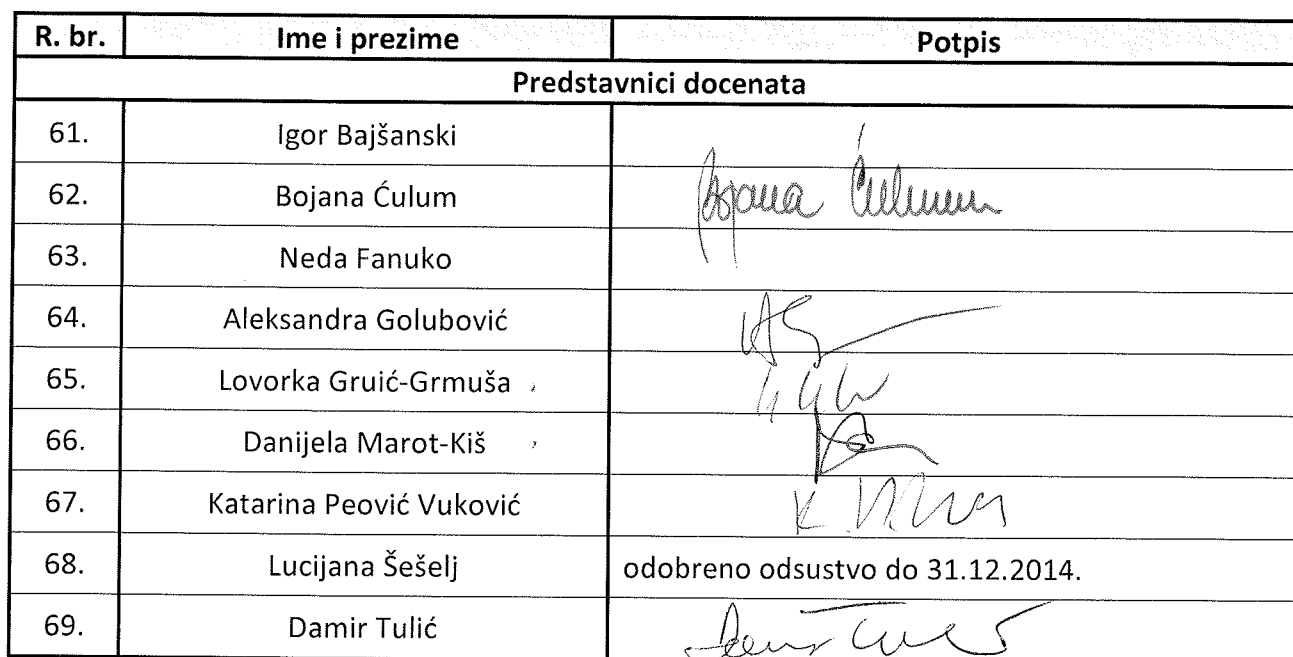 R. br. Ime i prezime Potpis
Predstavnici docenata
61. Igor Bajšanski
62. Bojana Ćulum Bojana Ćulum
63. Neda Fanuko
64. Aleksandra Golubović
65. Lovorka Gruić-Grmuša
66. Danijela Marot-Kiš
67. Katarina Peović Vuković
68. Lucijana Šešelj odobreno odsustvo do 31.12.2014.
69. Damir Tulić